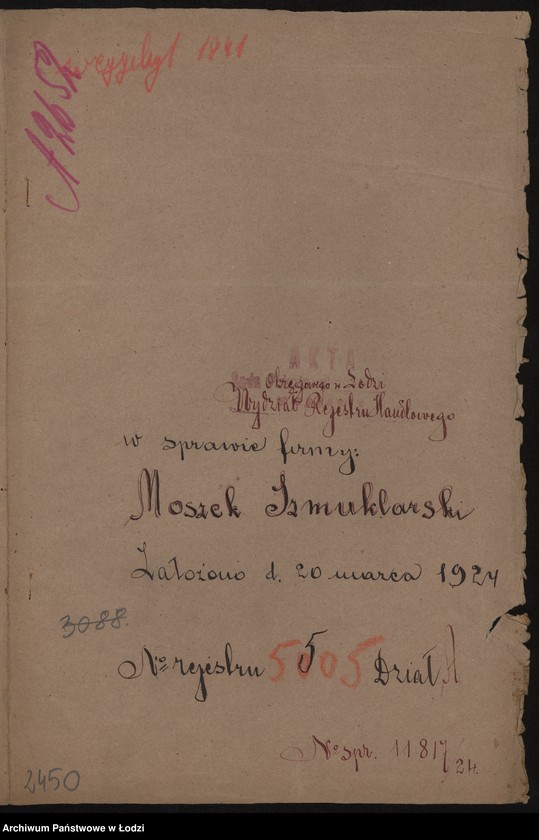 1841
A 2652
AKTA
Sądu Okręgowego w Łodzi
Wydział Rejestru Handlowego
w sprawie firmy:
Moszek Szmuklarski
Założono d. 20 marca 1924
3088.
No rejestru 5005 Dział A
No spr. 11817/24.
2450
Archiwum Państwowe w Łodzi